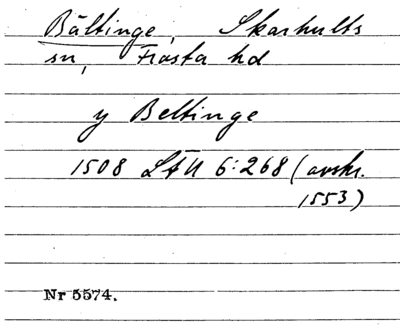 Bältinge, Skarhults
sn, Frosta hd
y Beltinge
1508 LÄU 6:268 (avskr.
1553)
Nr 5574.